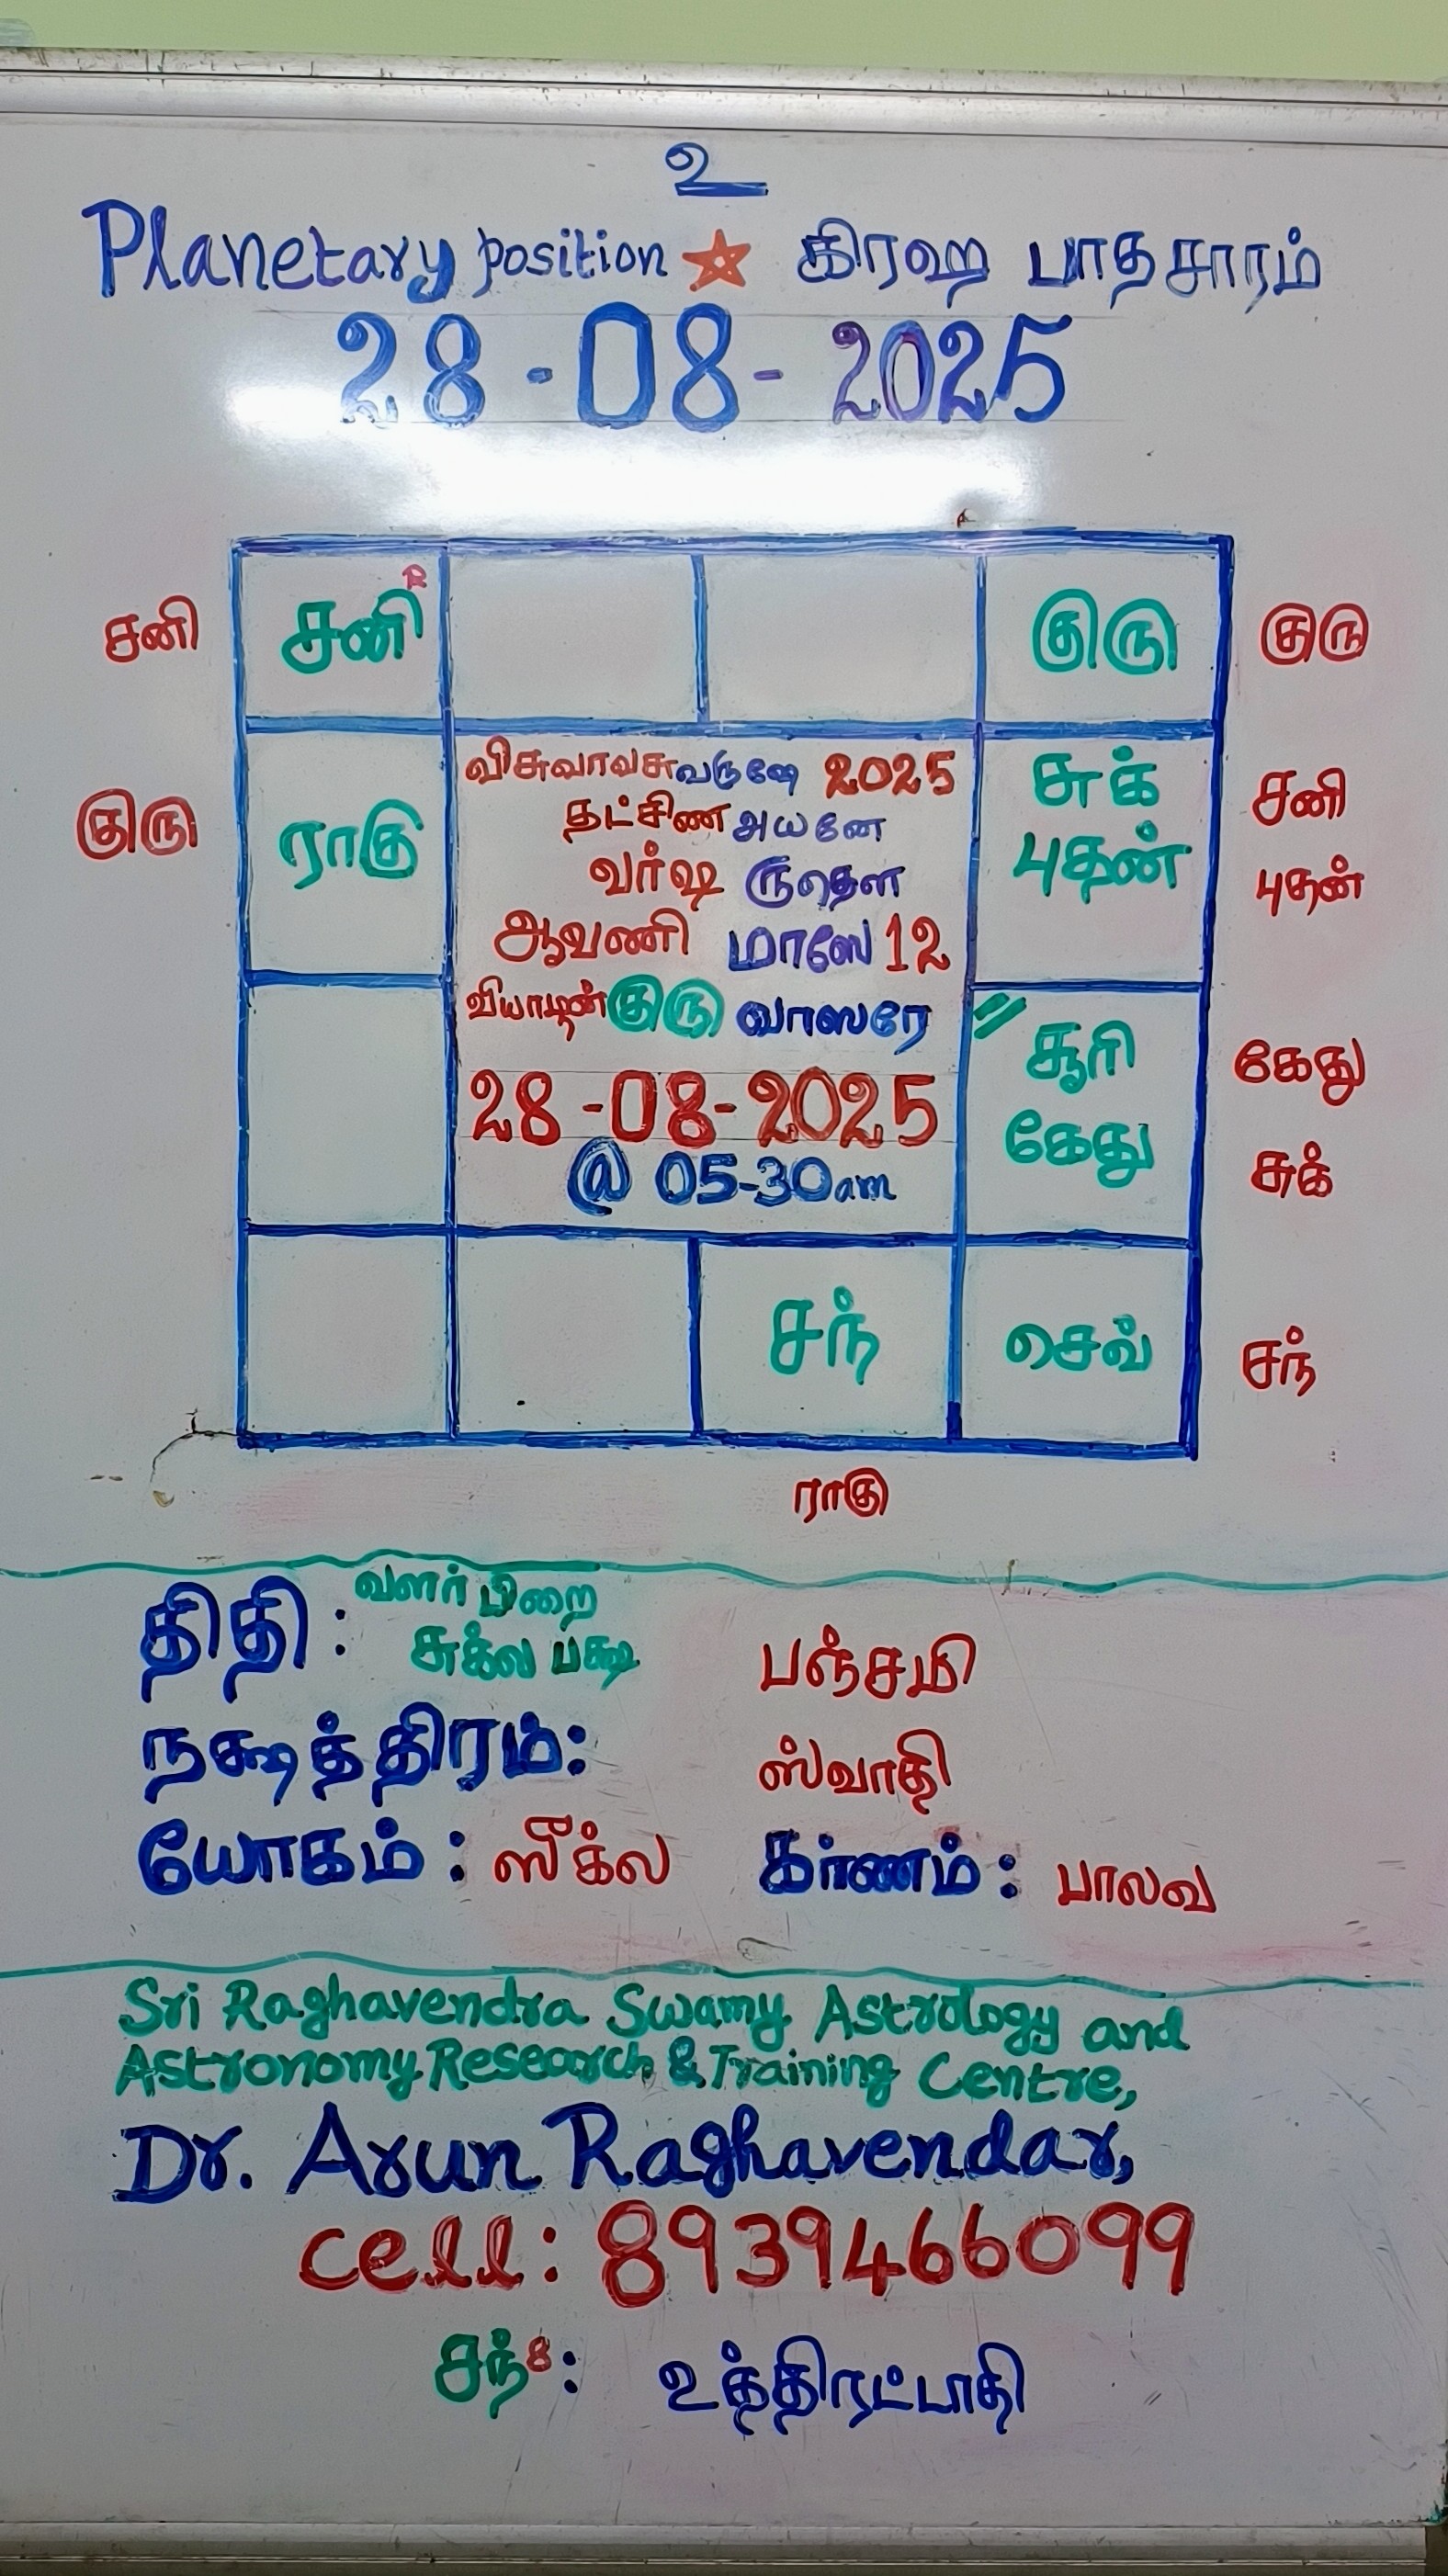 உ
Planetary position ☆ கிரஹ பாதசாரம்
28-08-2025
சனி சனி R குரு குரு
விசுவாவசுவருஷே 2025
தட்சிண அயனே
வர்ஷ ருதௌ
ஆவணி மாஸே 12
வியாழன் குரு வாஸரே
28-08-2025
@ 05-30am
குரு ராகு
சுக் சனி
புதன் புதன்
சூரி கேது
கேது சுக்
சந் செவ் சந்
ராகு
திதி: வளர்பிறை
சுக்ல பக்ஷ பஞ்சமி
நக்ஷத்திரம்: ஸ்வாதி
யோகம்: ஸீக்ல கர்ணம்: பாலவ
Sri Raghavendra Swamy Astrology and
Astronomy Research & Training Centre,
Dr. Arun Raghavendar,
cell: 8939466099
சந் 8: உத்திரட்டாதி